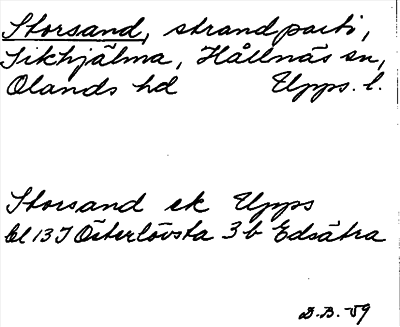 Storsand, strandparti,
Sikhjälma, Hållnäs sn,
Olands hd Upps. l.
Storsand ek Upps
bl 13 I Österlövsta 3 b Edsätra
B.B. -59